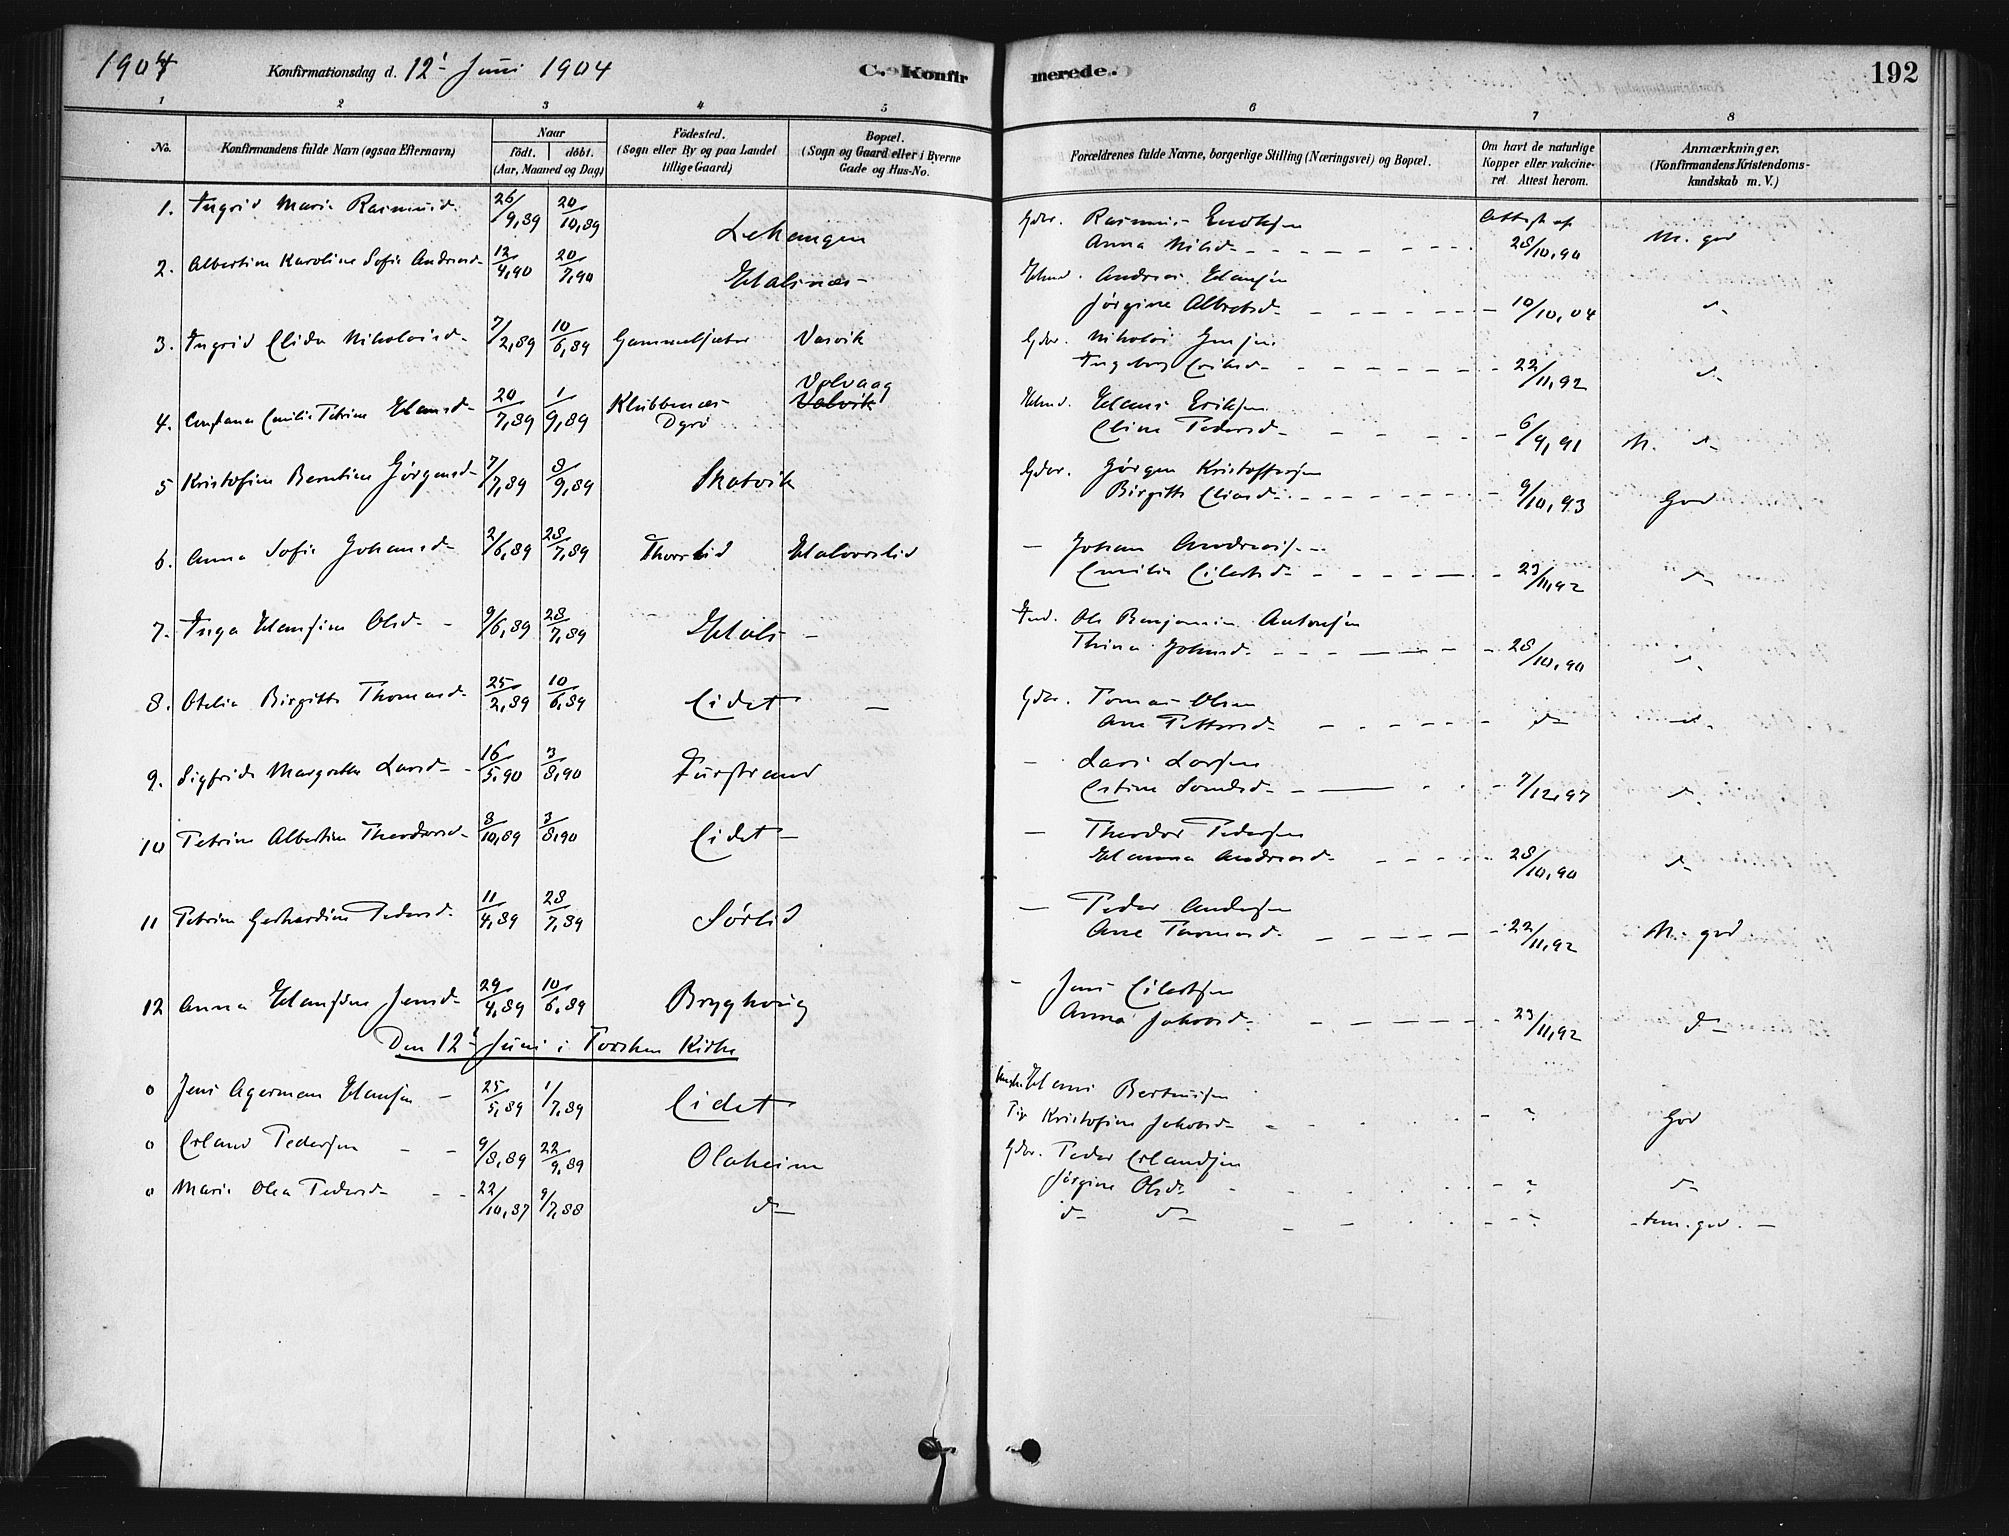 1904 Konfirmationsdag d. 12' Juni 1904 C. Konfirmerede. 192
1 2 3 4 5 6 7 8
No. Konfirmandens fulde Navn (ogsaa Efternavn) Naar Födested. Bopæl. Forældrenes fulde Navne, borgerlige Stilling (Næringsvei) og Bopæl. Om havt de naturlige Anmærkninger.
födt. döbt. (Sogn eller By og paa Landet (Sogn og Gaard eller i Byerne Kopper eller vakcine- (Konfirmandens Kristendoms-
(Aar, Maaned og Dag) tillige Gaard) Gade og Hus-No. ret. Attest herom. kundskab m. V.)
1. Ingrid Marie Rasmusd. 26/9,89 20/10,89 Lekangen Gdbr. Rasmus Attest af
Anna Nilsd. 28/10,90 M. god
2. Albertine Karoline Sofie Andreasd. 12/4,90 20/7,90 Halsnæs Hmd. Andreas Hansen
Jørgine Albretsd. 10/10,04 d.
3. Ingrid Elida Nikolaisd. 7/2,89 10/6,89 Gammelsæter Vasvik Gdbr. Nikolai Jensen
Ingeborg Eriksd. 22/11,92 d.
Volvaag
4. Constance Emilie Petrine Hansd. 20/7,89 1/9,89 Klubbenæs Valvik Hmd. Hans Eriksen
Dyrö Eline Pedersd. 6/9,91 M. d.
5 Kristofine Berntine Jørgensd. 7/7,89 8/9,89 Skatvik Gdbr. Jørgen Kristoffersen
Birgitte Eliasd. 9/10,93 God
6. Anna Sofie Johansd. 2/6,89 28/7,89 Thorslid Halvorslid - Johan Andreas
Emilie Eilertsd. 23/11,92 d.
7. Inga Hansine Olsd. 9/6,89 28/7,89 Hals Ind. Ole Benjamin Antonsen
Thina Johansd. 28/10,90 d.
8. Otelie Birgitte Thomasd. 25/2,89 10/6,89 Eidet - Gdbr. Tomas Olsen
Ane Pettersd. d. d.
9. Sigfride Margrethe Larsd. 16/5,90 3/8,90 Furstrand - Lars Larsen
7/12,97 d.
10 Petrine Albertine Theodorsd. 8/10,89 3/8,90 Eidet - Theodor Pedersen
Hanna Andreasd. 28/10,90 d.
11 Petrine Gerhardine Pedersd. 11/4,89 28/7,89 Sørlid - Peder Andersen
Ane Thomasd. 22/11,92 M. god
12 Anna Hansine Jensd. 29/4,89 10/6,89 Bryghaug - Jens Eilertsen
Anna Jakobsd. 23/11,92 d.
Den 12' Juni i Torsken Kirke
0 Jens Agerman Hansen 25/5,89 1/7,89 Eidet Hans Berteussen
Pig. Kristofine Jakobsd. ? God
0 Erland Pedersen 9/8,89 22/9,89 Olaheim Gdbr. Peder Erlandsen
Jørgine Olsd. ? d.
0 Marie Olea Pedersd. 22/10,87 9/7,88 d. d. d. ? tem. god.